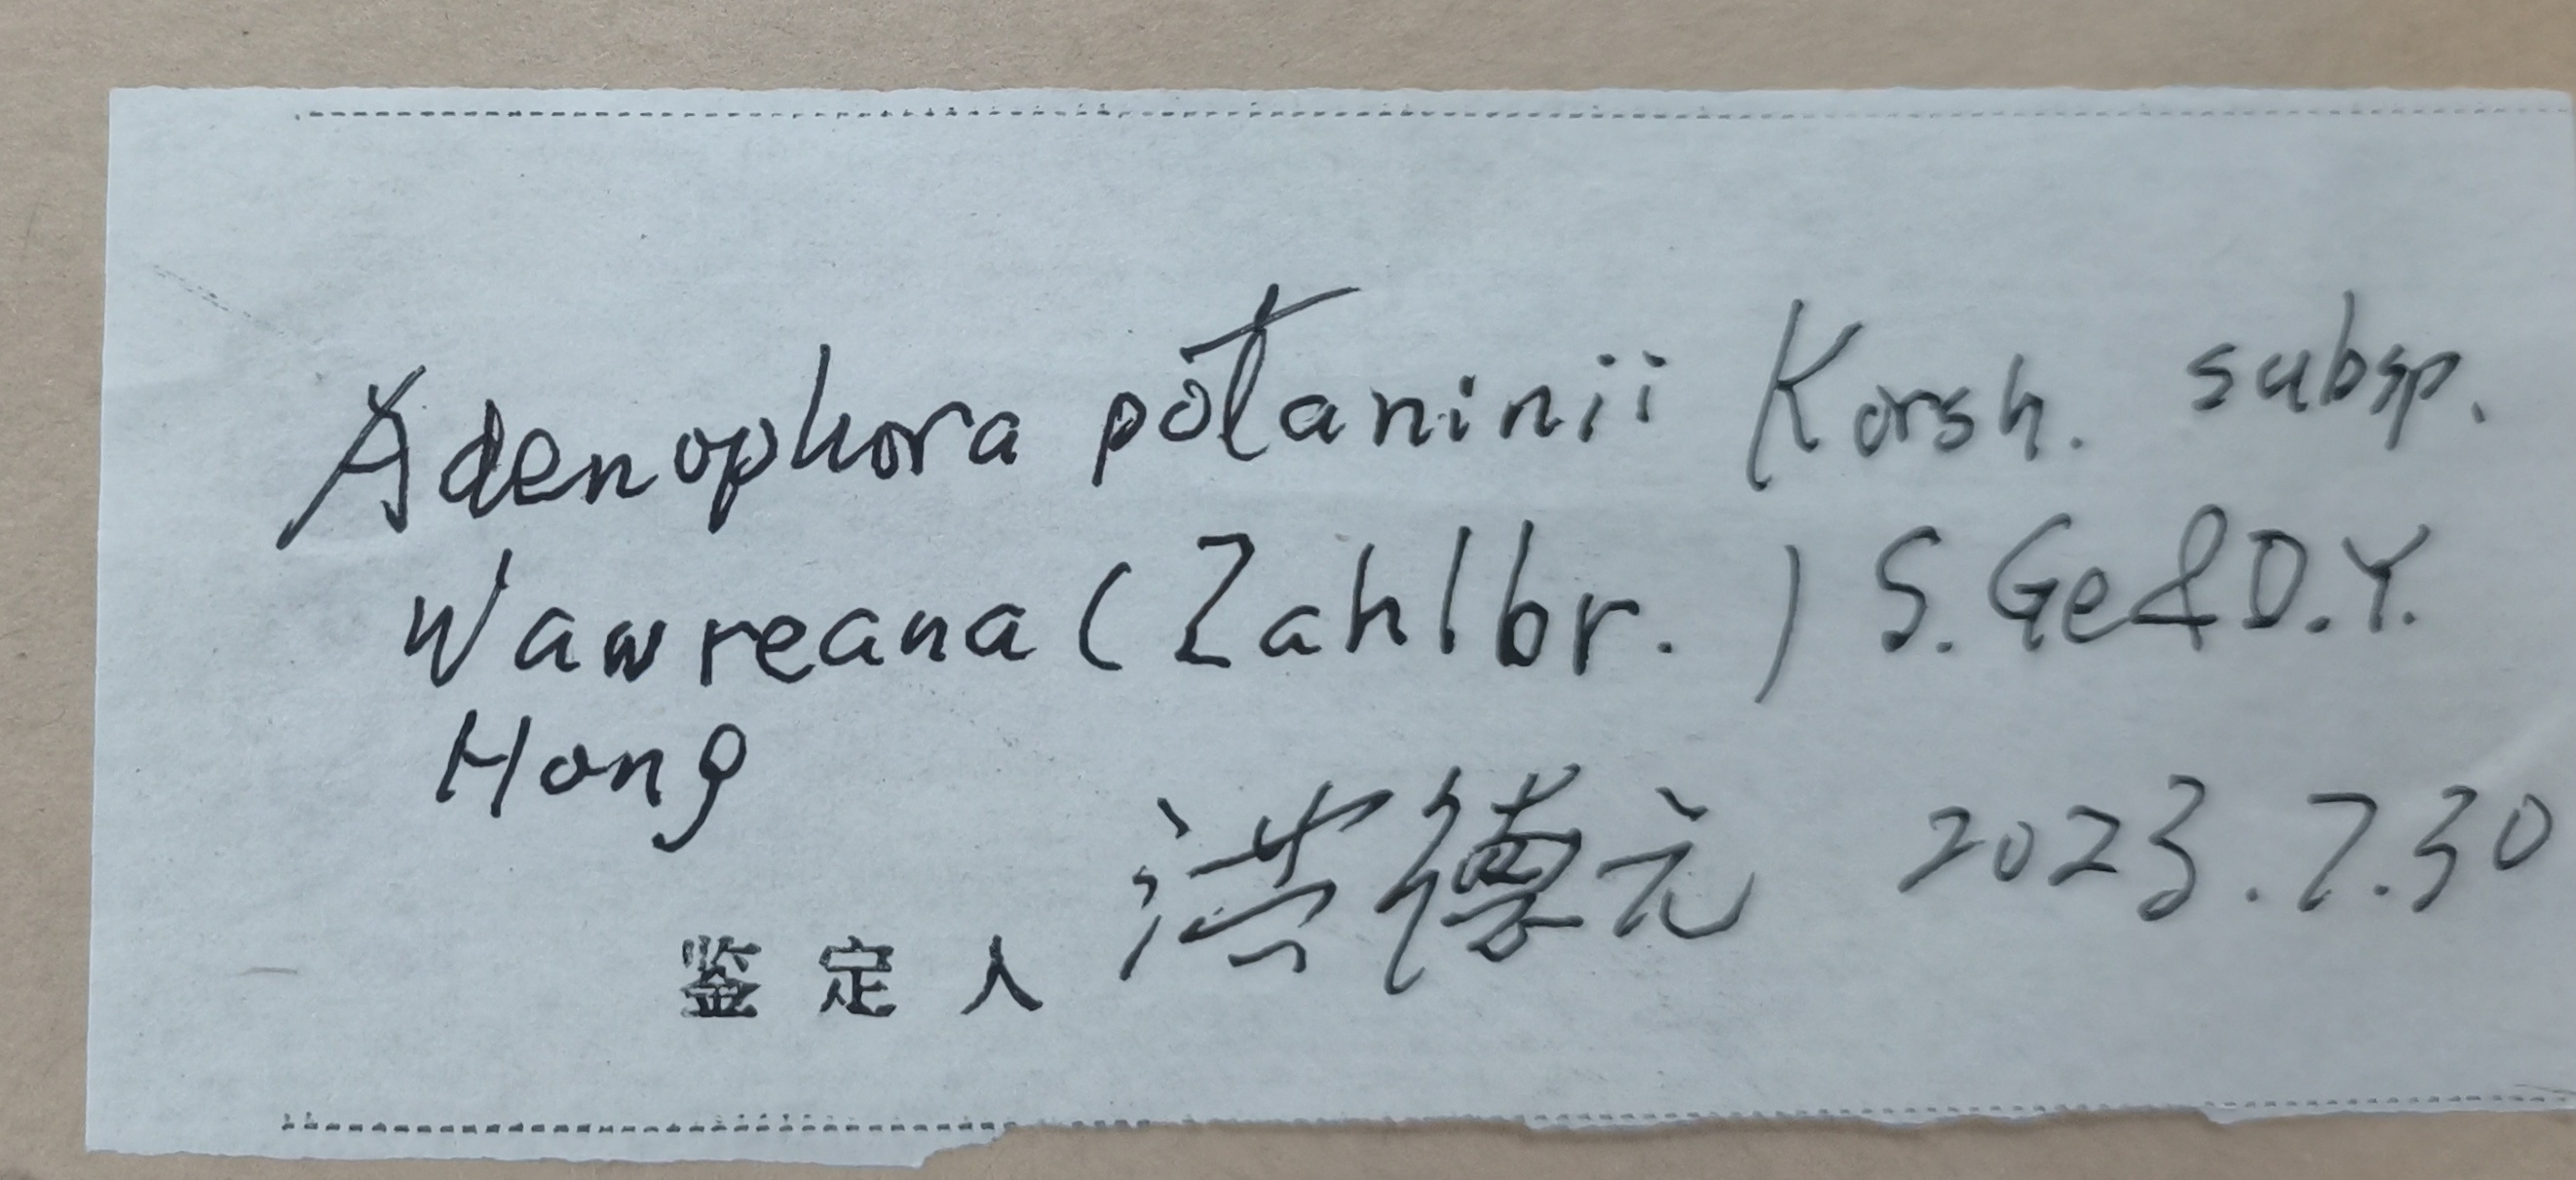 Adenophora potaninii Korsh. subsp.
Wawreana (Zahlbr.) S. Ge & D. Y.
Hong
鉴定人 洪德元 2023.7.30